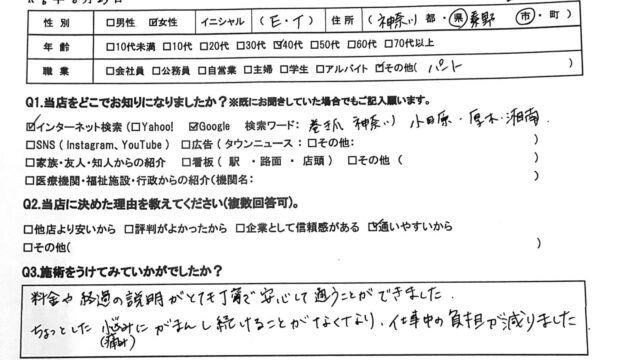 性 別 □男性 ☑女性 イニシャル (E・T) 住 所 (神奈川 都・県 秦野 市・町)
年 齢 □10代未満 □10代 □20代 □30代 ☑40代 □50代 □60代 □70代以上
職 業 □会社員 □公務員 □自営業 □主婦 □学生 □アルバイト ☑その他( パート )
Q1.当店をどこでお知りになりましたか?※既にお聞きしていた場合でもご記入願います。
☑インターネット検索(□Yahoo! ☑Google 検索ワード: 巻き爪 神奈川 小田原・厚木・湘南
□SNS(Instagram、YouTube) □広告(タウンニュース:□その他: )
□家族・友人・知人からの紹介 □看板(駅・路面・店頭) □その他( )
□医療機関・福祉施設・行政からの紹介(機関名: )
Q2.当店に決めた理由を教えてください(複数回答可)。
□他店より安いから □評判がよかったから □企業として信頼感がある ☑通いやすいから
□その他( )
Q3.施術をうけてみていかがでしたか?
料金や経過の説明がとても丁寧で安心して通うことができました.
ちょっとした悩みにがまんし続けることがなくなり、仕事中の負担が減りました
(痛み)